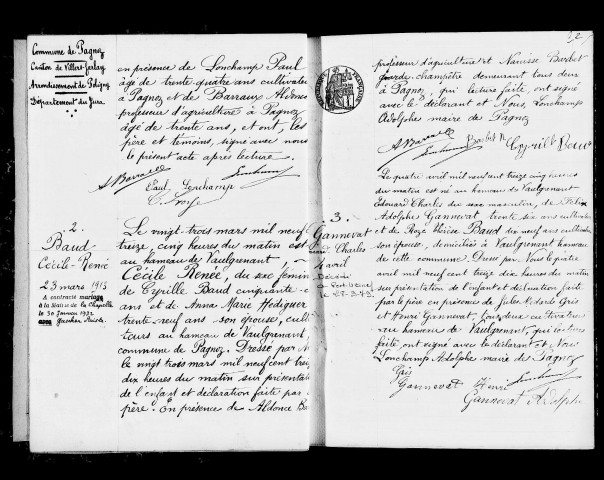 Commune de Pagnoz
Canton de Villers-Farlay
Arrondissement de Poligny
Département du Jura
en présence de Lonchamp Paul
âgé de trente quatre ans cultivateur
à Pagnoz et de Barraux Aldonce
professeur d'agriculture à Pagnoz
âgé de trente ans, et ont, les
père et témoins, signé avec nous
le présent acte après lecture.
A Barraux
Paul Lonchamp
2.
Baud
Cécile-Renée
23 mars 1913
A contracté mariage
à la Mairie de La Chapelle
le 30 Janvier 1932
avec
Le vingt trois mars mil neuf
treize, cinq heures du matin est
au hameau de Vaulgrenant,
Cécile Renée, du sexe féminin
de Cyrille Baud cinquante
ans et de Anna Marie Hediguer
trente neuf ans son épouse, culti
teurs au hameau de Vaulgrenant
commune de Pagnoz. Dressé par N
le vingt trois mars mil neuf cent treize
dix heures du matin sur présentat
de l'enfant et déclaration faite par
père. En présence de Aldonce Bar
professeur d'agriculture et Narcisse Barbet
garde champêtre demeurant tous deux
à Pagnoz, qui lecture faite, ont signé
avec le déclarant et Nous, Lonchamp
Adolphe maire de Pagnoz
A Barraux
Barbet N
Cyrille Baud
3.
Gannevat
Charles
4 avril
Décédé
Le quatre avril mil neuf cent treize cinq heures
du matin est né au hameau de Vaulgrenant
Edouard Charles du sexe masculin, de Félix
Adolphe Gannevat trente six ans cultivateur
et de Roze Eloïse Baud dix neuf ans cultivateur
son épouse, domiciliés à Vaulgrenant hameau
de cette commune. Dressé par Nous le quatre
avril mil neuf cent treize dix heures du matin
sur présentation de l'enfant et déclaration faite
par le père en présence de Jules Gris
et Henri Gannevat, tous deux cultivateurs
au hameau de Vaulgrenant, qui lecture
faite, ont signé avec le déclarant et Nous
Lonchamp Adolphe maire de Pagnoz
Gris
Gannevat Henri
Gannevat Adolphe